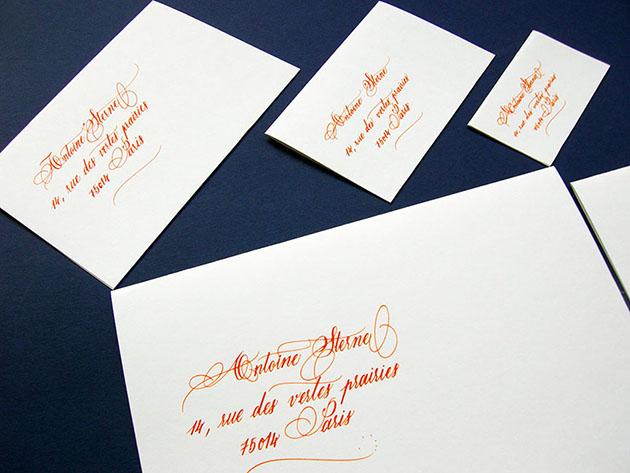 Antoine Sterne
14, rue des vertes prairies
75014 Paris
Antoine Sterne
14, rue des vertes prairies
75014 Paris
Antoine Sterne
14, rue des vertes prairies
75014 Paris
Antoine Sterne
14, rue des vertes prairies
75014
Paris